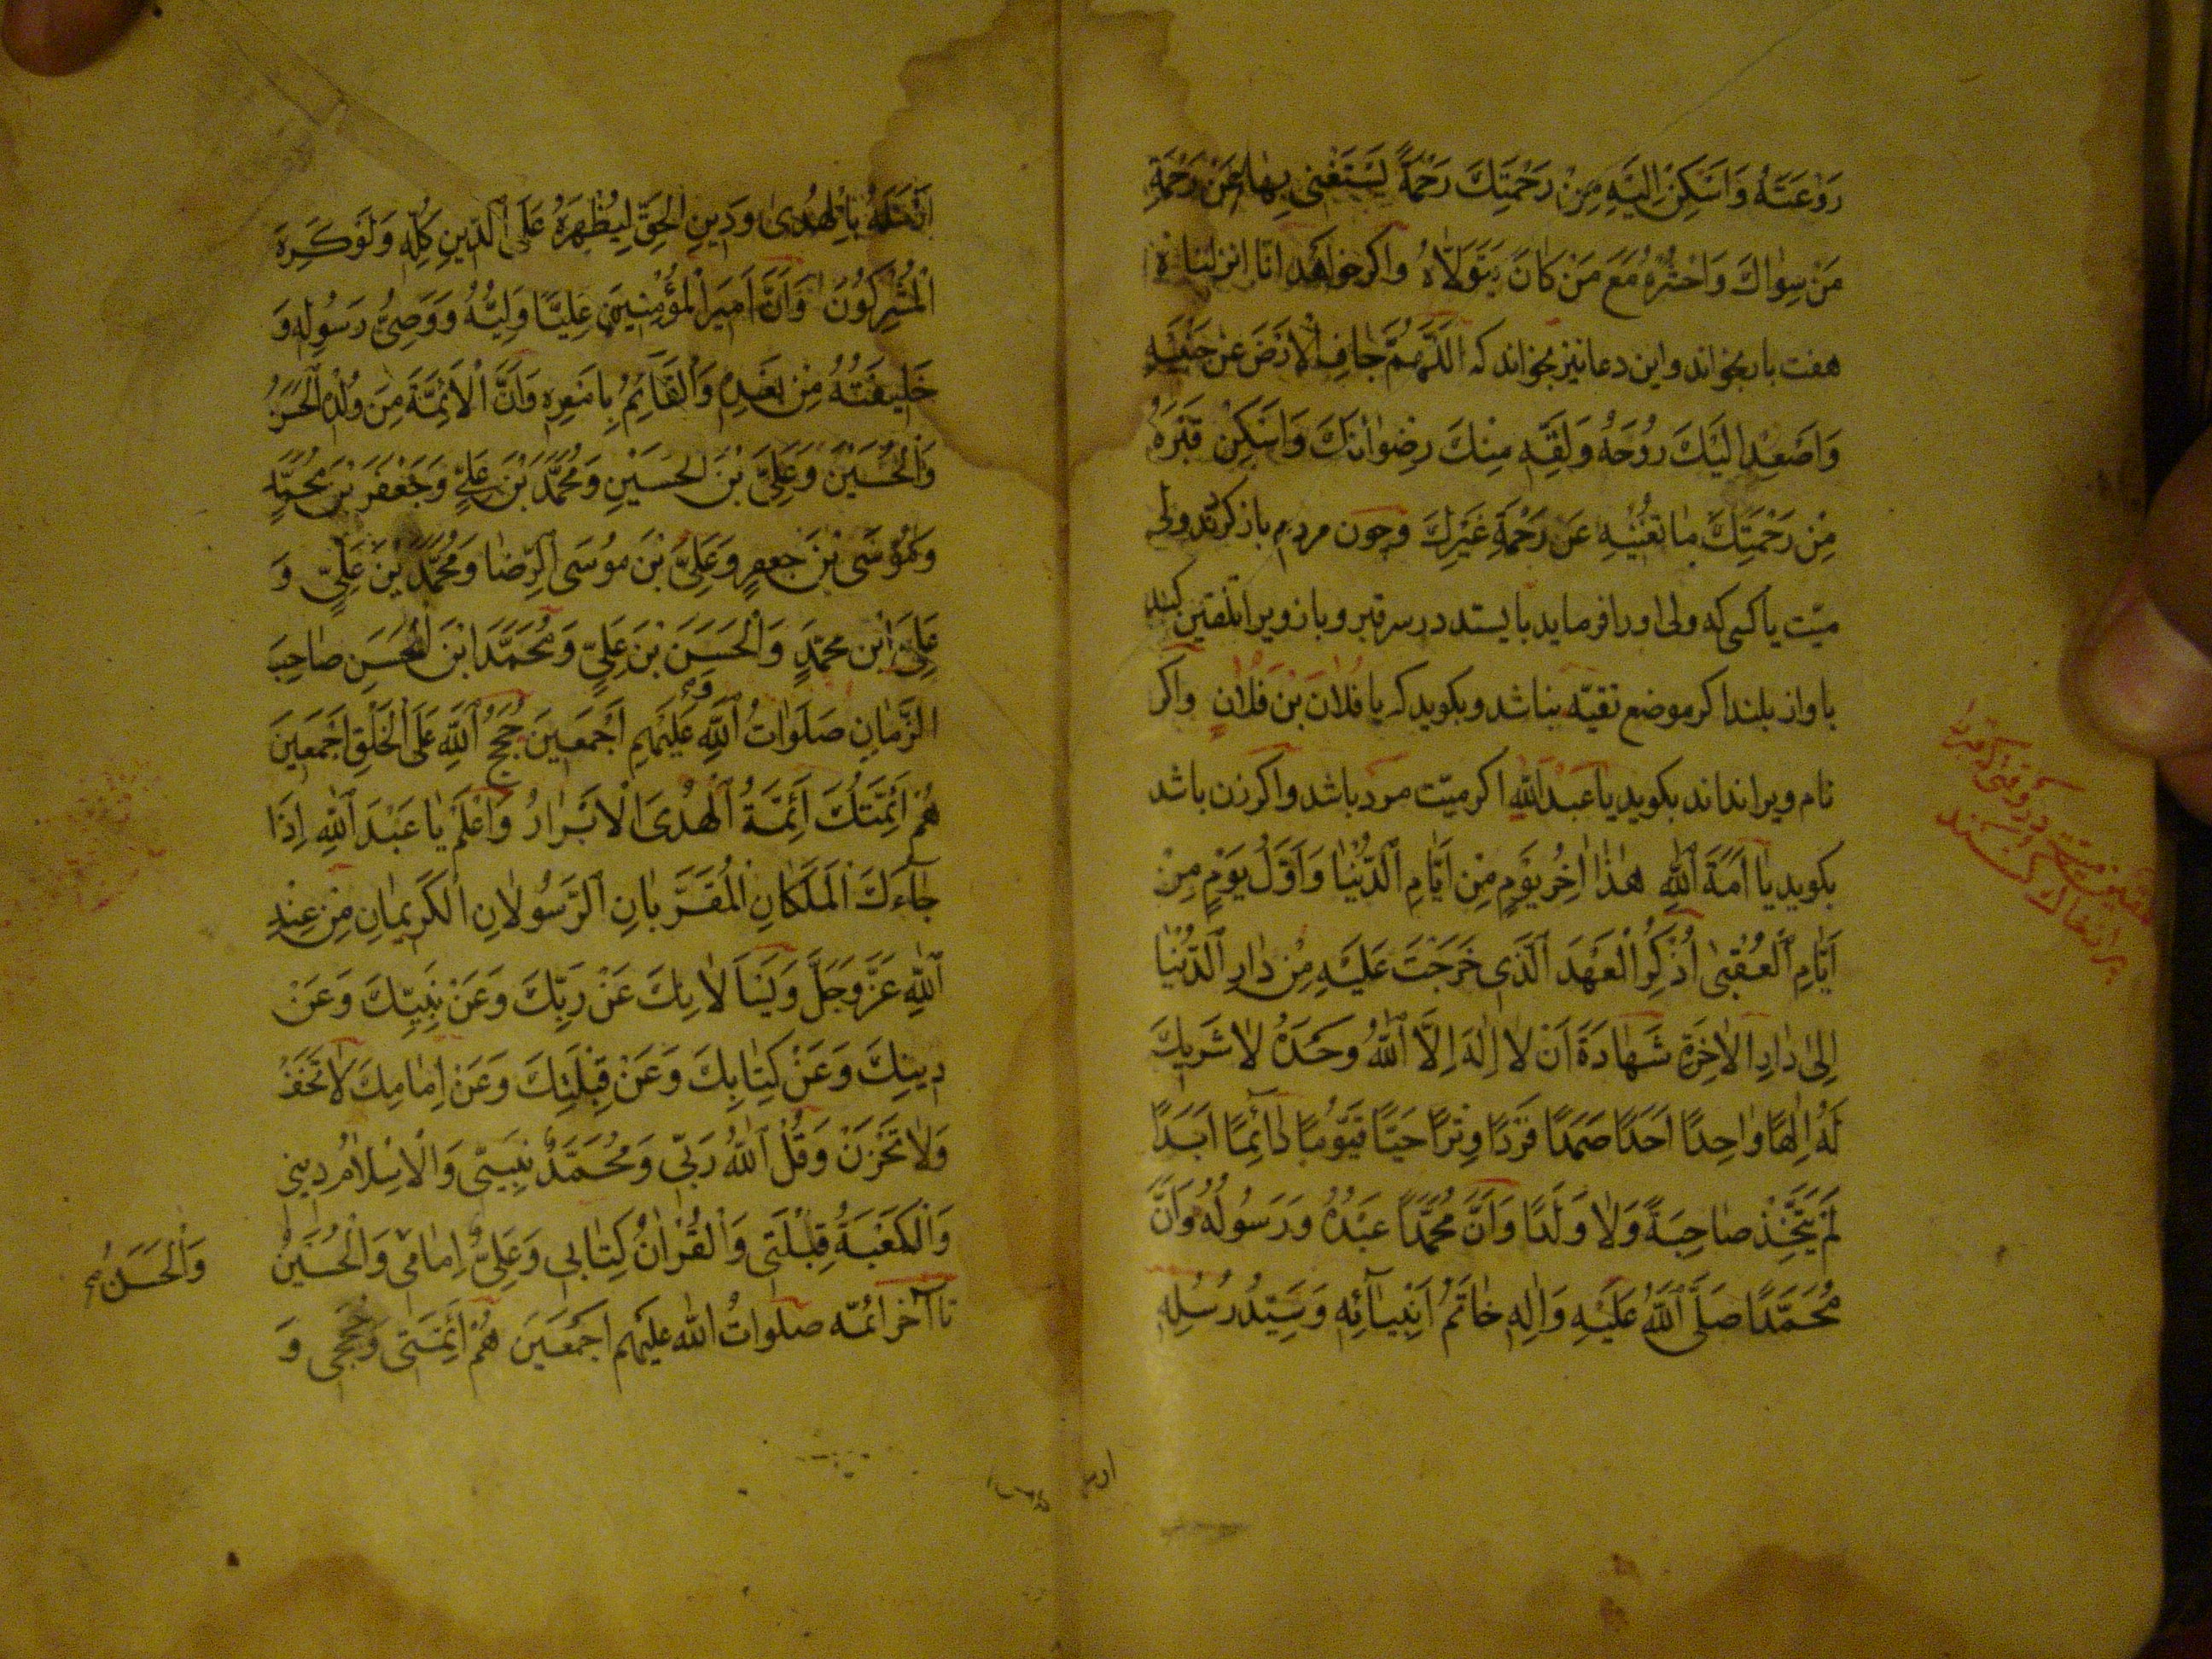 رَوْعَتَهُ وَاَسْكِنْ اِلَيْهِ مِنْ رَحْمَتِكَ رَحْمَةً يَسْتَغْنِى بِهٰا عَنْ رَحْمَةِ
مَنْ سِوٰاكَ وَاحْشُرْهُ مَعَ مَنْ كٰانَ يَتَوَلّاهُ واكر خواهد انّا انزلناه
هفت بار بخواند واين دعا نيز بخواند كه اَللّهُمَّ جٰافِ الْاَرْضَ عَنْ جَنْبَيْهِ
وَاَصْعِدْ اِلَيْكَ رُوُحَهُ وَلَقِّهِ مِنْكَ رِضْوٰانَكَ وَاَسْكِنْ قَبْرَهُ
مِنْ رَحْمَتِكَ مٰا تُغْنِيْهِ عَنْ رَحْمَةِ غَيْرِكَ وچون مردم باز كردند ولى
ميّت يا كسى كه ولى اورا فرمايد بايستد در سر قبر و باز ويرا تلقين كند
باواز بلند اكر موضع تقيّه نباشد وبكويد كه يا فُلانَ بْنَ فُلانٍ واكر
نام ويرا نداند بكويد يا عَبْدَ اللّٰهِ اكر ميّت مرد باشد واكر زن باشد
بكويد يٰا اَمَةَ اللّٰهِ هٰذٰا اٰخِرُ يَوْمٍ مِنْ اَيّٰامِ الدُّنْيٰا وَاَوَّلُ يَوْمٍ مِنْ
اَيّٰامِ الْعُقْبىٰ اُذْكُرِ الْعَهْدَ الَّذى خَرَجْتَ عَلَيْهِ مِنْ دٰارِ الدُّنْيٰا
اِلىٰ دٰارِ الْاٰخِرَةِ شَهٰادَةَ اَنْ لٰا اِلٰهَ اِلَّا اللّٰهُ وَحْدَهُ لٰا شَرِيكَ
لَهُ اِلٰهًا وٰاحِدًا اَحَدًا صَمَدًا فَرْدًا وِتْرًا حَيًّا قَيُّومًا دٰائِمًا اَبَدًا
لَمْ يَتَّخِذْ صٰاحِبَةً وَلٰا وَلَدًا وَاَنَّ مُحَمَّدًا عَبْدُهُ وَرَسُولُهُ وَاَنَّ
مُحَمَّدًا صَلَّى اللّٰهُ عَلَيْهِ وَاٰلِهِ خٰاتَمُ اَنْبِيٰائِهِ وَسَيِّدُ رُسُلِهِ
اَرْسَلَهُ بِالْهُدىٰ وَدِينِ الْحَقِّ لِيُظْهِرَهُ عَلَى الدّينِ كُلِّهِ وَلَوْ كَرِهَ
الْمُشْرِكُونَ وَاَنَّ اَميرَ الْمُؤْمِنينَ عَلِيًّا وَلِيُّهُ وَوَصِىُّ رَسُولِهِ وَ
خَليفَتُهُ مِنْ بَعْدِهِ وَالْقٰائِمُ بِاَمْرِهِ وَاَنَّ الْاَئِمَّةَ مِنْ وُلْدِهِ الْحَسَنَ
وَالْحُسَيْنَ وَعَلِىَّ بْنَ الْحُسَيْنِ وَمُحَمَّدَ بْنَ عَلِىٍّ وَجَعْفَرَ بْنَ مُحَمَّدٍ
وَمُوْسَى بْنَ جَعفرٍ وَعَلِىَّ بْنَ مُوسَى الرِّضٰا وَمُحَمَّدَ بْنَ عَلِىٍّ وَ
عَلِىَّ ابْنَ محمّدٍ وَالْحَسَنَ بْنَ عَلِىٍّ وَمُحَمَّدَ ابْنَ الْحَسَنِ صٰاحِبَ
الزَّمٰانِ صَلَوٰاتُ اللّٰهِ عَلَيْهِمْ اَجْمَعينَ حُجَجُ اللّٰهِ عَلَى الْخَلْقِ اَجْمَعينَ
هُمْ اَئِمَّتُكَ اَئِمَّةُ الْهُدَى الْاَبْرٰارُ وَاعْلَمْ يٰا عَبْدَ اللّٰهِ اِذٰا
جٰاءَكَ الْمَلَكٰانِ الْمُقَرَّبٰانِ الرَّسُولٰانِ الْكَرِيمٰانِ مِنْ عِنْدِ
اللّٰهِ عَزَّ وَجَلَّ وَيَسْاَلٰانِكَ عَنْ رَبِّكَ وَعَنْ نَبِيِّكَ وَعَنْ
دينِكَ وَعَنْ كِتٰابِكَ وَعَنْ قِبْلَتِكَ وَعَنْ اِمٰامِكَ لٰا تَخَفْ
وَلٰا تَحْزَنْ وَقُلْ اَللّٰهُ رَبّى وَمُحَمَّدٌ نَبِيّى وَالْاِسْلٰامُ دينى
وَالْكَعْبَةُ قِبْلَتى وَالْقُرْاٰنُ كِتٰابى وَعَلِىٌّ اِمٰامى وَالْحُسَيْنُ
وَالْحَسَنُ
تا آخر ائمّه صلوٰاتُ اللّٰه عليهم اَجْمَعينَ هُمْ اَئِمَّتى وَحُجَجى وَ